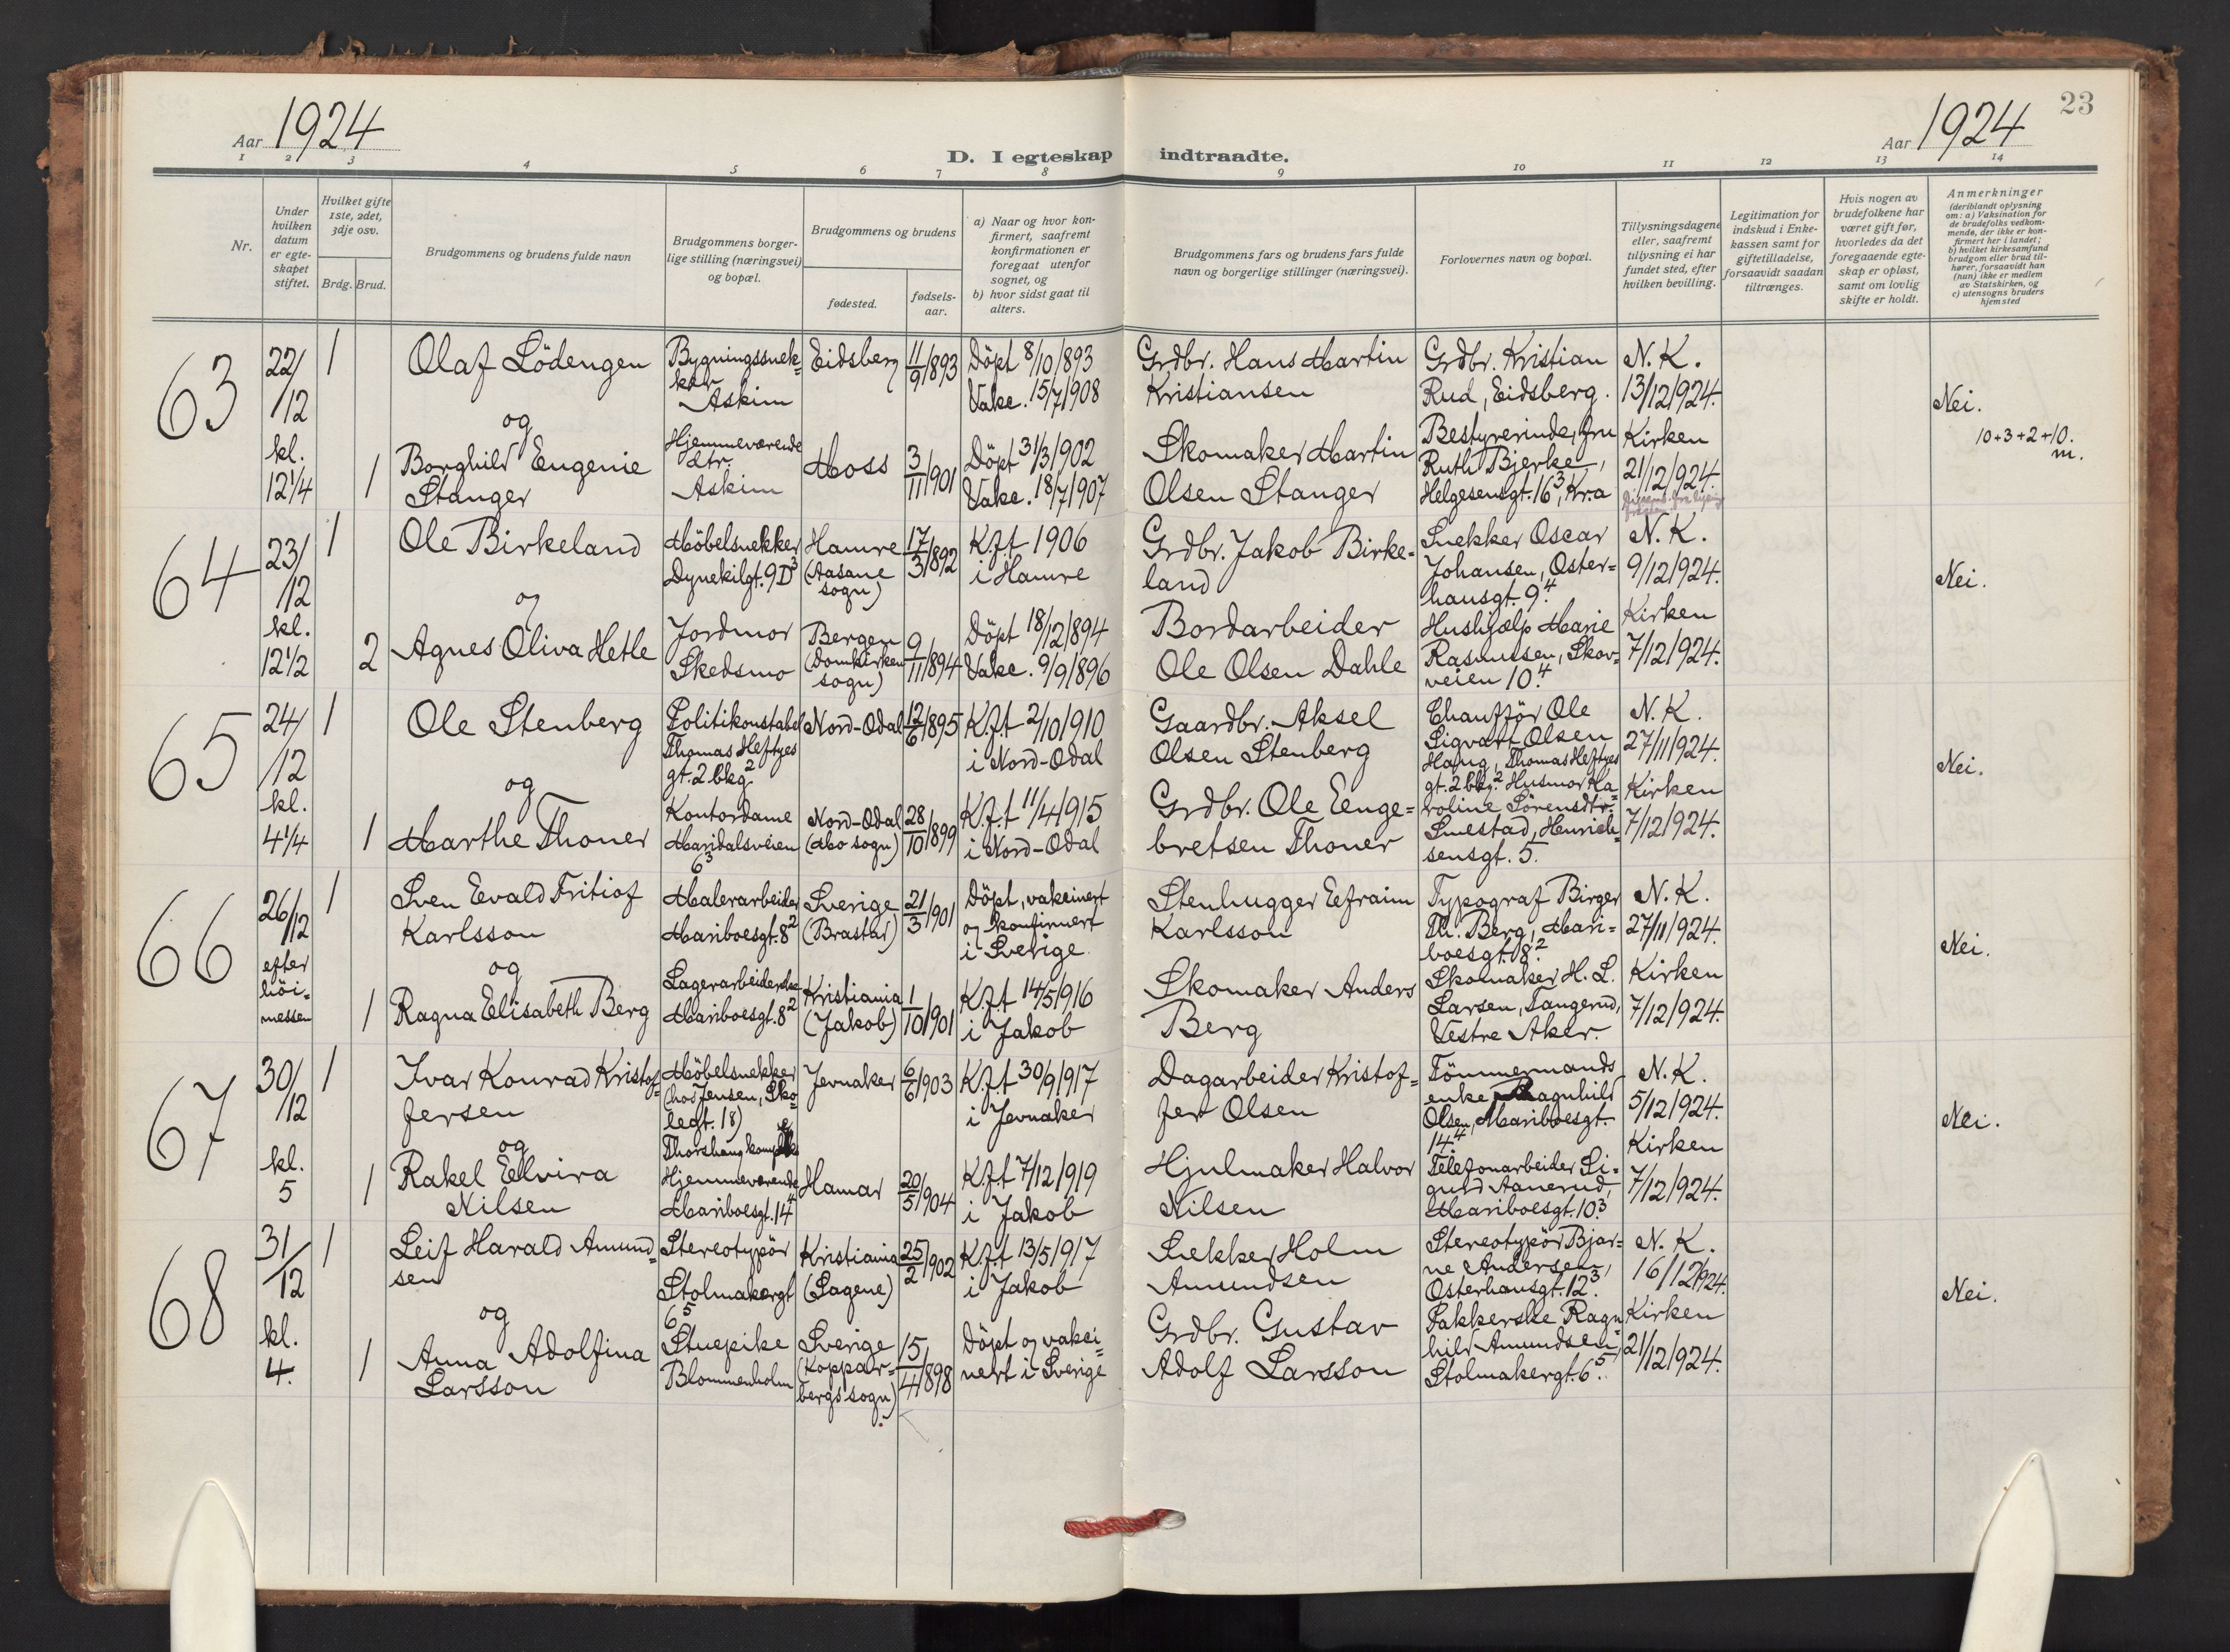 Aar 1924
Aar 1924
23
D. I egteskap indtraadte.
1 2 3 4 5 6 7 8 9 10 11 12 13 14
Nr.
Under
hvilken
datum
er egte-
skapet
stiftet.
Hvilket gifte
1ste, 2det,
3dje osv.
Brdg. Brud.
Brudgommens og brudens fulde navn
Brudgommens borger-
lige stilling (næringsvei)
og bopæl.
Brudgommens og brudens
fødested.
fødsels-
aar.
a) Naar og hvor kon-
firmert, saafremt
konfirmationen er
foregaat utenfor
sognet, og
b) hvor sidst gaat til
alters.
Brudgommens fars og brudens fars fulde
navn og borgerlige stillinger (næringsvei).
Forlovernes navn og bopæl.
Tillysningsdagene
eller, saafremt
tillysning ei har
fundet sted, efter
hvilken bevilling.
Legitimation for
indskud i Enke-
kassen samt for
giftetilladelse,
forsaavidt saadan
tiltrænges.
Hvis nogen av
brudefolkene har
været gift før,
hvorledes da det
foregaaende egte-
skap er opløst,
samt om lovlig
skifte er holdt.
Anmerkninger
(deriblandt oplysning
om: a) Vaksination for
de brudefolks vedkom-
mende, der ikke er kon-
firmert her i landet;
b) hvilket kirkesamfund
brudgom eller brud til-
hører, forsaavidt han
(hun) ikke er medlem
av Statskirken, og
c) utensogns bruders
hjemsted
63
22/
/12
kl.
12 1/4
1
Olaf Lödengen
og
1
Borghild Eugenie
Stanger
Bygningssnek=
ker
Askim
Hjemmeværende
dtr.
Askim
Eidsberg
Moss
11/9/893
3/11/901
Döpt 8/10/893
Vakc. 15/7/908
Döpt 31/3/902
Vakc. 18/7/907
Grdbr. Hans Martin
Kristiansen
Skomaker Martin
Olsen Stanger
Grdbr. Kristian
Rud, Eidsberg.
Bestyrerinde, fru
Ruth Bjerke,
Helgesensgt. 16 3, Kr.a
N. K.
13/12/924.
Kirken
21/12/924.
Nei.
10+3+2+10.
m.
64
23/
/12
kl.
12 1/2
1
Ole Birkeland
og
2
Agnes Oliva Hetle
Möbelsnekker
Dynekilgt. 9 D 3
Jordmor
Skedsmo
Hamre
(Aasane
sogn)
Bergen
(Domkirken
sogn)
17/3/892
9/11/894
K.f.t 1906
i Hamre
Döpt 18/12/894
Vakc. 9/9/896
Grdbr. Jakob Birke=
land
Bordarbeider
Ole Olsen Dahle
Snekker Oscar
Johansen, Oster=
hausgt. 9 4.
Hushjælp Marie
Rasmussen, Skov=
veien 10 4.
N. K.
9/12/924.
Kirken
7/12/924.
Nei.
65
24/
/12
kl.
4 1/4
1
Ole Stenberg
og
1
Marthe Thoner
Politikonstabel
Thomas Heftyes
gt. 2 bkg. 2
Kontordame
Maridalsveien
6 3
Nord-Odal
Nord-Odal
(Mo sogn)
12/6/895
28/10/899
K.f.t 2/10/910
i Nord-Odal
K.f.t 11/4/915
i Nord-Odal
Gaardbr. Aksel
Olsen Stenberg
Grdbr. Ole Eenge=
bretsen Thoner
Chaufför Ole
Sigvart Olsen
Haug, Thomas Heftyes
gt. 2 bkg. 2 Husmor Ka=
roline Sörensdtr.
Smestad, Henrich=
sensgt. 5.
N. K.
27/11/924.
Kirken
7/12/924.
Nei.
66
26/
/12
efter
höi=
messen
1
Sven Evald Fritiof
Karlsson
og
1
Ragna Elisabeth Berg
Malerarbeider
Mariboesgt. 8 2
Lagerarbeiderske
Mariboesgt. 8 2
Sverige
(Brastad)
Kristiania
(Jakob)
21/3/901
1/10/901
Döpt, vakcinert
og konfirmert
i Sverige
K.f.t 14/5/916
i Jakob
Stenhugger Eefraim
Karlsson
Skomaker Anders
Berg
Typograf Birger
Th. Berg, Mari=
boesgt. 8. 2
Skomaker H. L.
Larsen, Tangerud,
Vestre Aker.
N. K.
27/11/924.
Kirken
7/12/924.
Nei.
67
30/
/12
kl.
5
1
Ivar Konrad Kristof=
fersen
og
1
Rakel Elvira
Nilsen
Möbelsnekker
(hos Jensen, Sko=
legt. 18)
Hjemmeværende
Mariboesgt. 14 4
Jevnaker
Hamar
6/6/903
20/5/904
K.f.t 30/9/917
i Jevnaker
K.f.t 7/12/919
i Jakob
Dagarbeider Kristof=
fer Olsen
Hjulmaker Halvor
Nilsen
Tömmermands
enke Ragnhild
Olsen, Mariboesgt.
14 4
Telefonarbeider Si=
gurd Aanerud,
Mariboesgt. 10 3.
N. K.
5/12/924.
Kirken
7/12/924.
Nei.
68
31/
/12
kl.
4.
1
Leif Harald Amund=
sen
og
1
Anna Adolfina
Larsson
Stereotypör
Stolmakergt
6 5
Stuepike
Blommenholm
Kristiania
(Sagene)
Sverige
(Koppar=
bergs sogn)
25/2/902
15/4/898
K.f.t 13/5/917
i Jakob
Döpt og vakci=
nert i Sverige
Snekker Holm
Amundsen
Grdbr. Gustav
Adolf Larsson
Stereotypör Bjar=
ne Andersen,
Osterhausgt. 12 3.
Pakkerske Ragn=
hild Amundsen,
Stolmakergt. 6 5.
N. K.
16/12/924.
Kirken
21/12/924.
Nei.